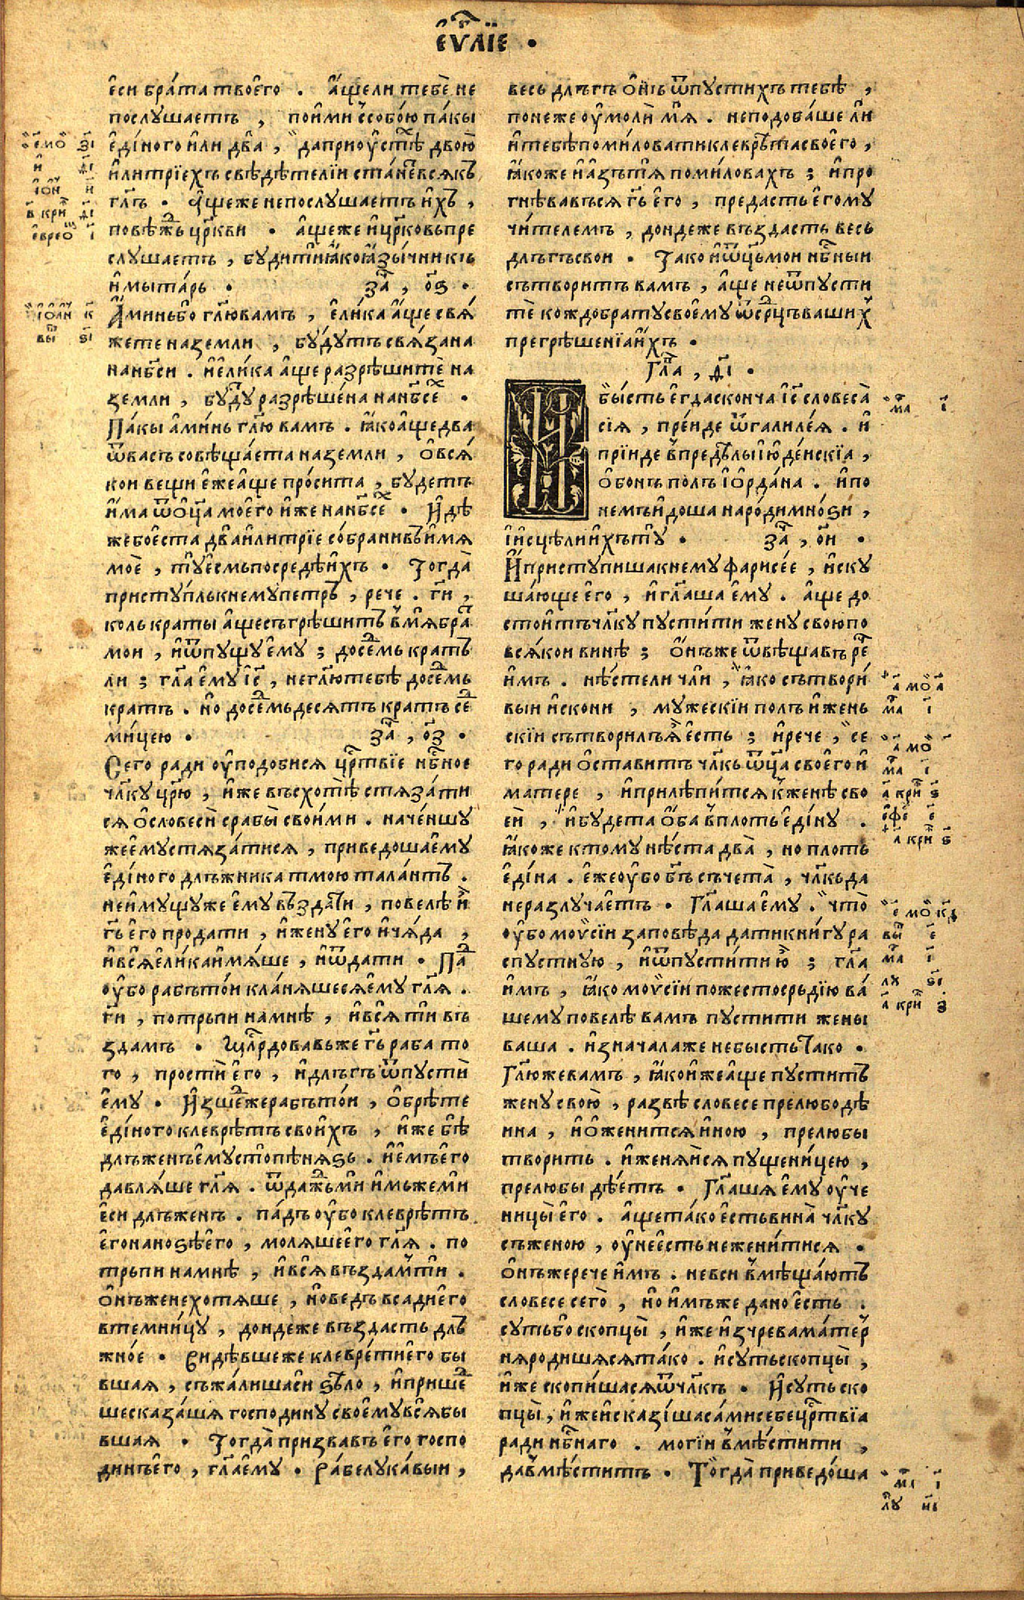 є҆ѵⷢ҇лїе .
є҆си бра́та твоє҆го . а҆́щели тебѐ не
послꙋшаетъ , пои҆ми̑ ссобо́ю па́кы
є҆ди́ного и҆ли два̀ , даприоу҆стѣⷯ двою̀
и҆ли трїе́хъ свѣдѣтелїи ста́неⷮ всякъ
гл҃ъ . а҆щеже непослꙋшаетъ и҆́хъ ,
повѣⷤжь цр҃кви . а҆щеже и҆цр҃ковь пре
слꙋшаетъ , бꙋди ти ꙗ҆ко ꙗ҆зы́чникъ
и҆ мыта́рь . заⷱ҇ , о҃з .
А҆минь бо гл҃ю вамъ , є҆ли́ка а҆ще свѧ́
жете на земли , бꙋ́дꙋтъ свѧ́зана
на нб҃си . и҆ є҆ли́ка а҆ще разрѣшитѐ на
земли , бꙋдꙋ разрѣше́на на нб҃сеⷯ .
Па́кы а҆ми́нь гл҃ю вамъ . ꙗ҆ко а҆ще два
ѿ васъ совѣща́ета на земли , о҆ всѧ́
кои вещи є҆же а҆́ще про́сита , бꙋ́детъ
и҆ма ѿ о҆ц҃а моє҆го и҆же на нб҃сеⷯ . И҆дѣ
же бо є҆ста два̀ и҆ли трїѐ со́брани въ и҆мѧ
моѐ , тꙋ є҆смь посредѣ и҆́хъ . Тогда̀
пристꙋ́пль к немꙋ петръ , рече . гⷭ҇и ,
коль краты а҆ще съгрѣши́тъ в мѧ̀ браⷮ
мои , и҆ ѿпꙋщꙋ є҆мꙋ ; до се́дмь кратъ
ли ; гл҃а є҆мꙋ і҆с҃ , не гл҃ю тебѣ до се́дмь
кратъ . но до се́дмьдесѧтъ кратъ сеⷣ
ми́цею . заⷱ҇ , о҃з .
Сего ради оу҆подобисѧ црⷭ҇твїе нбⷭ҇ное
члк҃ꙋ цр҃ю , и҆же въсхотѣ̀ стѧза́ти
сѧ о҆ словеси̇ с рабы̀ свои́ми . наче́ншꙋ
же є҆мꙋ стѧза́тисѧ , приведоша є҆мꙋ
є҆ди́ного длъжника тмою тала́нтъ .
не и҆мꙋ́щꙋ же є҆мꙋ въздати , повелѣ и҆̀
гь҃ є҆го прода́ти , и҆ женꙋ є҆го и҆ чѧ́да ,
и҆ всѧ̀ є҆ли́ка и҆мѧ́ше , и҆ ѿда́ти . Паⷣ
оу҆бо рабъ то́и кла́нѧшесѧ є҆мꙋ гл҃ѧ .
гⷭ҇и , потрьпи на мнѣ , и҆ всѧ̀ ти въ
здамъ . Щⷣрдовавьже гь҃ раба то
го , прости̇ є҆го , и҆ длъгъ ѿпꙋсти̇
є҆мꙋ . И҆зшеⷣже рабъ то́и , о҆брѣте
є҆ди́ного клеврѣтъ свои́хъ , и҆же бѣ̀
длъженъ є҆мꙋ сто пѣнѧзь . и҆ є҆мъ є҆го
давлѧ́ше гл҃ѧ . ѿда́жⷣь ми и҆мьже ми
є҆си длъженъ . па́дъ оу҆бо клеврѣтъ
є҆го на ноѕѣ є҆го , молѧ́ше є҆го гл҃ѧ . по
трьпи на мнѣ , и҆ всѧ̀ възда́мъ ти .
О҆нъже не хотѧше , но ведъ всади є҆го
в темни́цꙋ , дондеже въздасть длъ
жно́е . Видѣвшеже клеврѣти є҆го бы
вшаѧ , съжа́лишаси ѕѣло , и҆ пришеⷣ
ше сказа́шѧ господинꙋ своє҆мꙋ всѧ̀ бы
вшаѧ . Тогда̀ призвавъ є҆го госпо
динъ є҆го , гл҃а є҆мꙋ . Ра́бе лꙋка́выи ,
весь длъгъ о҆нъ ѿпꙋстихъ тебѣ ,
понеже оу҆моли̇ мѧ . не подоба́ше ли
и҆ тебѣ поми́ловати клевре́та своє҆го ,
ꙗ҆коже и҆ а҆зъ тѧ поми́ловахъ ; и҆ про
гнѣвавъсѧ гь҃ є҆го , предасть є҆го мꙋ
чи́телемъ , дондеже въздасть весь
длъгъ свои . Тако и҆ ѿц҃ь мои нбⷭ҇ныи
сътворитъ вамъ , а҆ще не ѿпꙋсти
те кождо братꙋ своє҆мꙋ ѿ срⷣцъ вашиⷯ
прегрѣше́нїа и҆́хъ .
Глаⷡ҇ , д҃і .
И бы́сть є҆гда сконча і҆с҃ словеса̀
сїѧ , пре́иде ѿ галиле́ѧ . и҆
прїи́де в предѣлы і҆юде́искїа ,
о҆ бонъ полъ і҆о҆рда́на . и҆ по
немъ и҆доша наро́ди мно́ѕи ,
и҆ и҆сцѣли и҆́хъ тꙋ . заⷱ҇ , о҃и .
И҆ пристꙋпиша к немꙋ фарисе́е , и҆скꙋ
ша́юще є҆го , и҆ гл҃аша є҆мꙋ . а҆ще до
стои́тъ члк҃ꙋ пꙋсти́ти женꙋ свою по
всѧ́кои винѣ ; О҆нъже ѿвѣщавъ реⷱ҇
и҆мъ . нѣсте ли чли , ꙗ҆ко сътвори́
выи и҆скони , мꙋжескїи полъ и҆ жень
скїи сътворилъ ꙗ҆̀ є҆сть ; и҆ рече , се
го ради о҆ставитъ члк҃ъ ѿц҃а своего и҆
матере , и҆ прилѣпи́тсѧ к женѣ сво
є҆и , и҆ бꙋдета о҆́ба в плоть є҆ди́нꙋ .
ꙗ҆коже к томꙋ нѣста два̀ , но плоть
є҆ди́на . є҆же оу҆бо бг҃ъ съчета̀ , члк҃ъ да
не разлꙋчаетъ . Гл҃аша є҆мꙋ . что̀
оу҆бо моѵ̈си́и заповѣда дати кни́гꙋ ра
спꙋстнꙋю , и҆ ѿпꙋсти́ти ю҆̀ ; гл҃а
и҆мъ , ꙗ҆ко моѵ̈си́и по жестосрьдїю ва́
шемꙋ повелѣ вамъ пꙋстити жены
ваша . и҆значала же не бысть тако .
Гл҃юже вамъ , ꙗ҆ко и҆же а҆ще пꙋститъ
женꙋ свою̀ , развѣ словесе прелюбодѣ
и҆на , и҆ о҆женитсѧ и҆ною , прелюбы
творить . и҆ женѧ́исѧ пꙋщени́цею ,
прелюбы дѣ́етъ . Гл҃ашѧ є҆мꙋ оу҆че
ницы̀ є҆го . а҆ще та́ко є҆сть вина̀ члк҃ꙋ
съ женою , оу҆не є҆сть не жени́тисѧ .
О҆нъже рече и҆̀мъ . не вси вмѣща́ютъ
словесе сего̀ , но и҆́мъже дано є҆сть .
сꙋть бо скопцы̀ , и҆же и҆зчрева ма́терⷩ҇
нѧ родишѧсѧ та́ко . и҆ сꙋть скопцы̀ ,
и҆же скопи́шасѧ ѿ члк҃ъ . И҆ сꙋть ско
пцы̀ , и҆же и҆сказі́ша са́ми себе црⷭ҇твїа
ради нбⷭ҇наго . моги́и вмѣ́стити ,
да вмѣ́ститъ . Тогда̀ приведо́ша